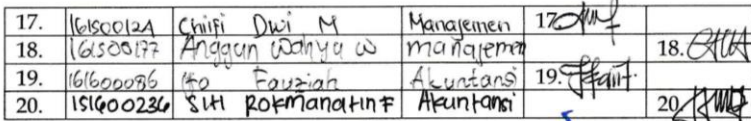 17. 161500124 Chifi Dwi M Manajemen 17.
18. 161500177 Anggun Wahyu W manajemen 18.
19. 161600086 Fauziah Akuntansi 19.
20. 151600236 Siti Rokmanatin F Akuntansi 20